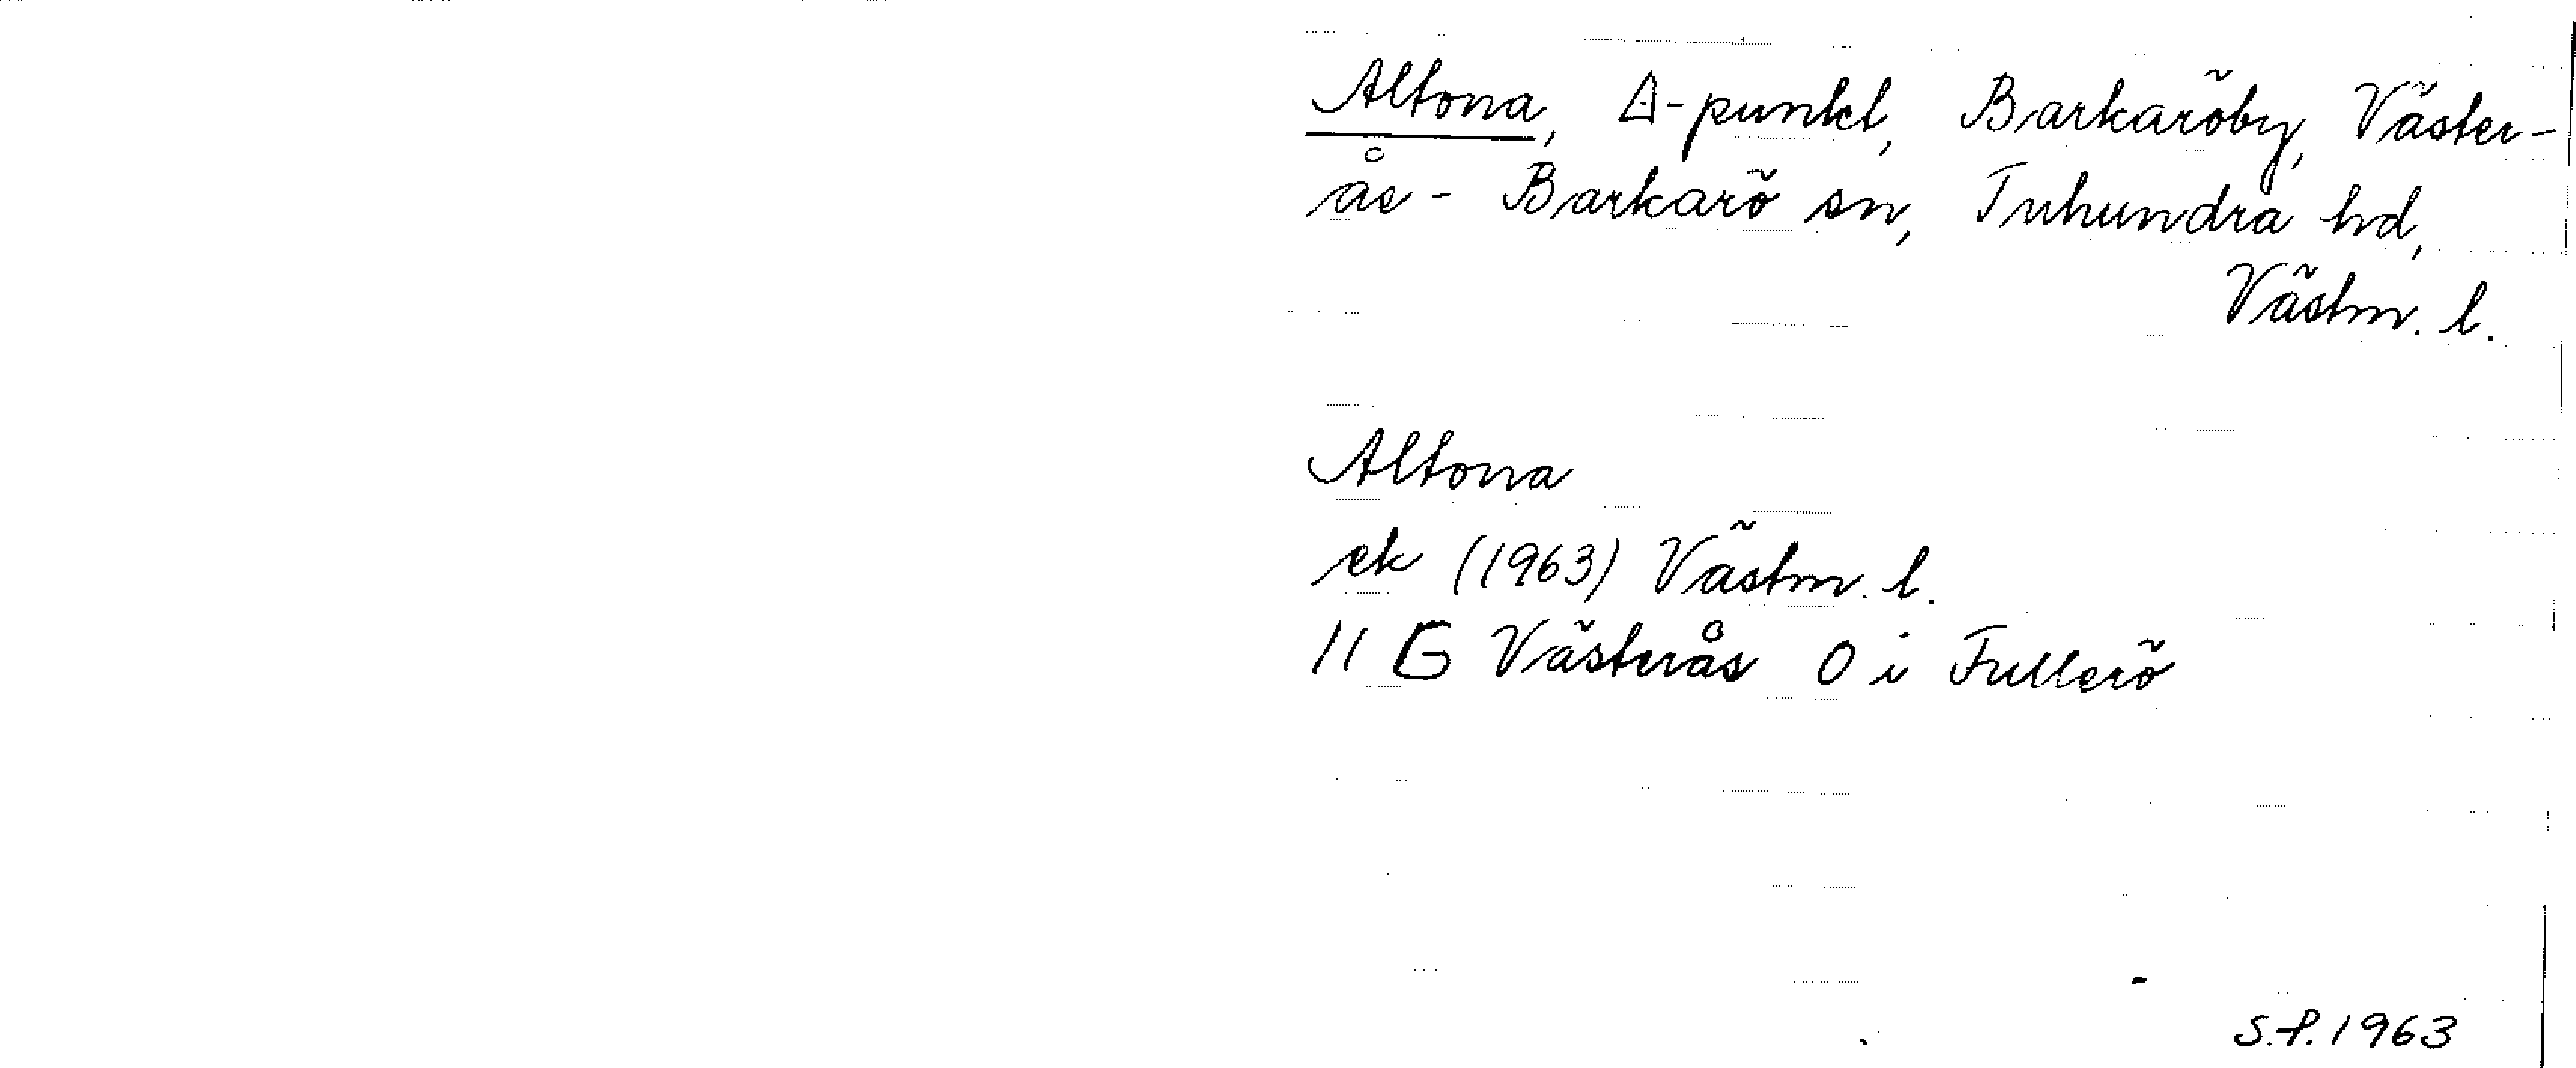 Altona, Δ-punkt, Barkaröby, Väster-
ås - Barkarö sn, Tuhundra hd,
Västm. l.
Altona
ek (1963) Västm. l.
11 G Västerås O i Fullerö
S.P. 1963